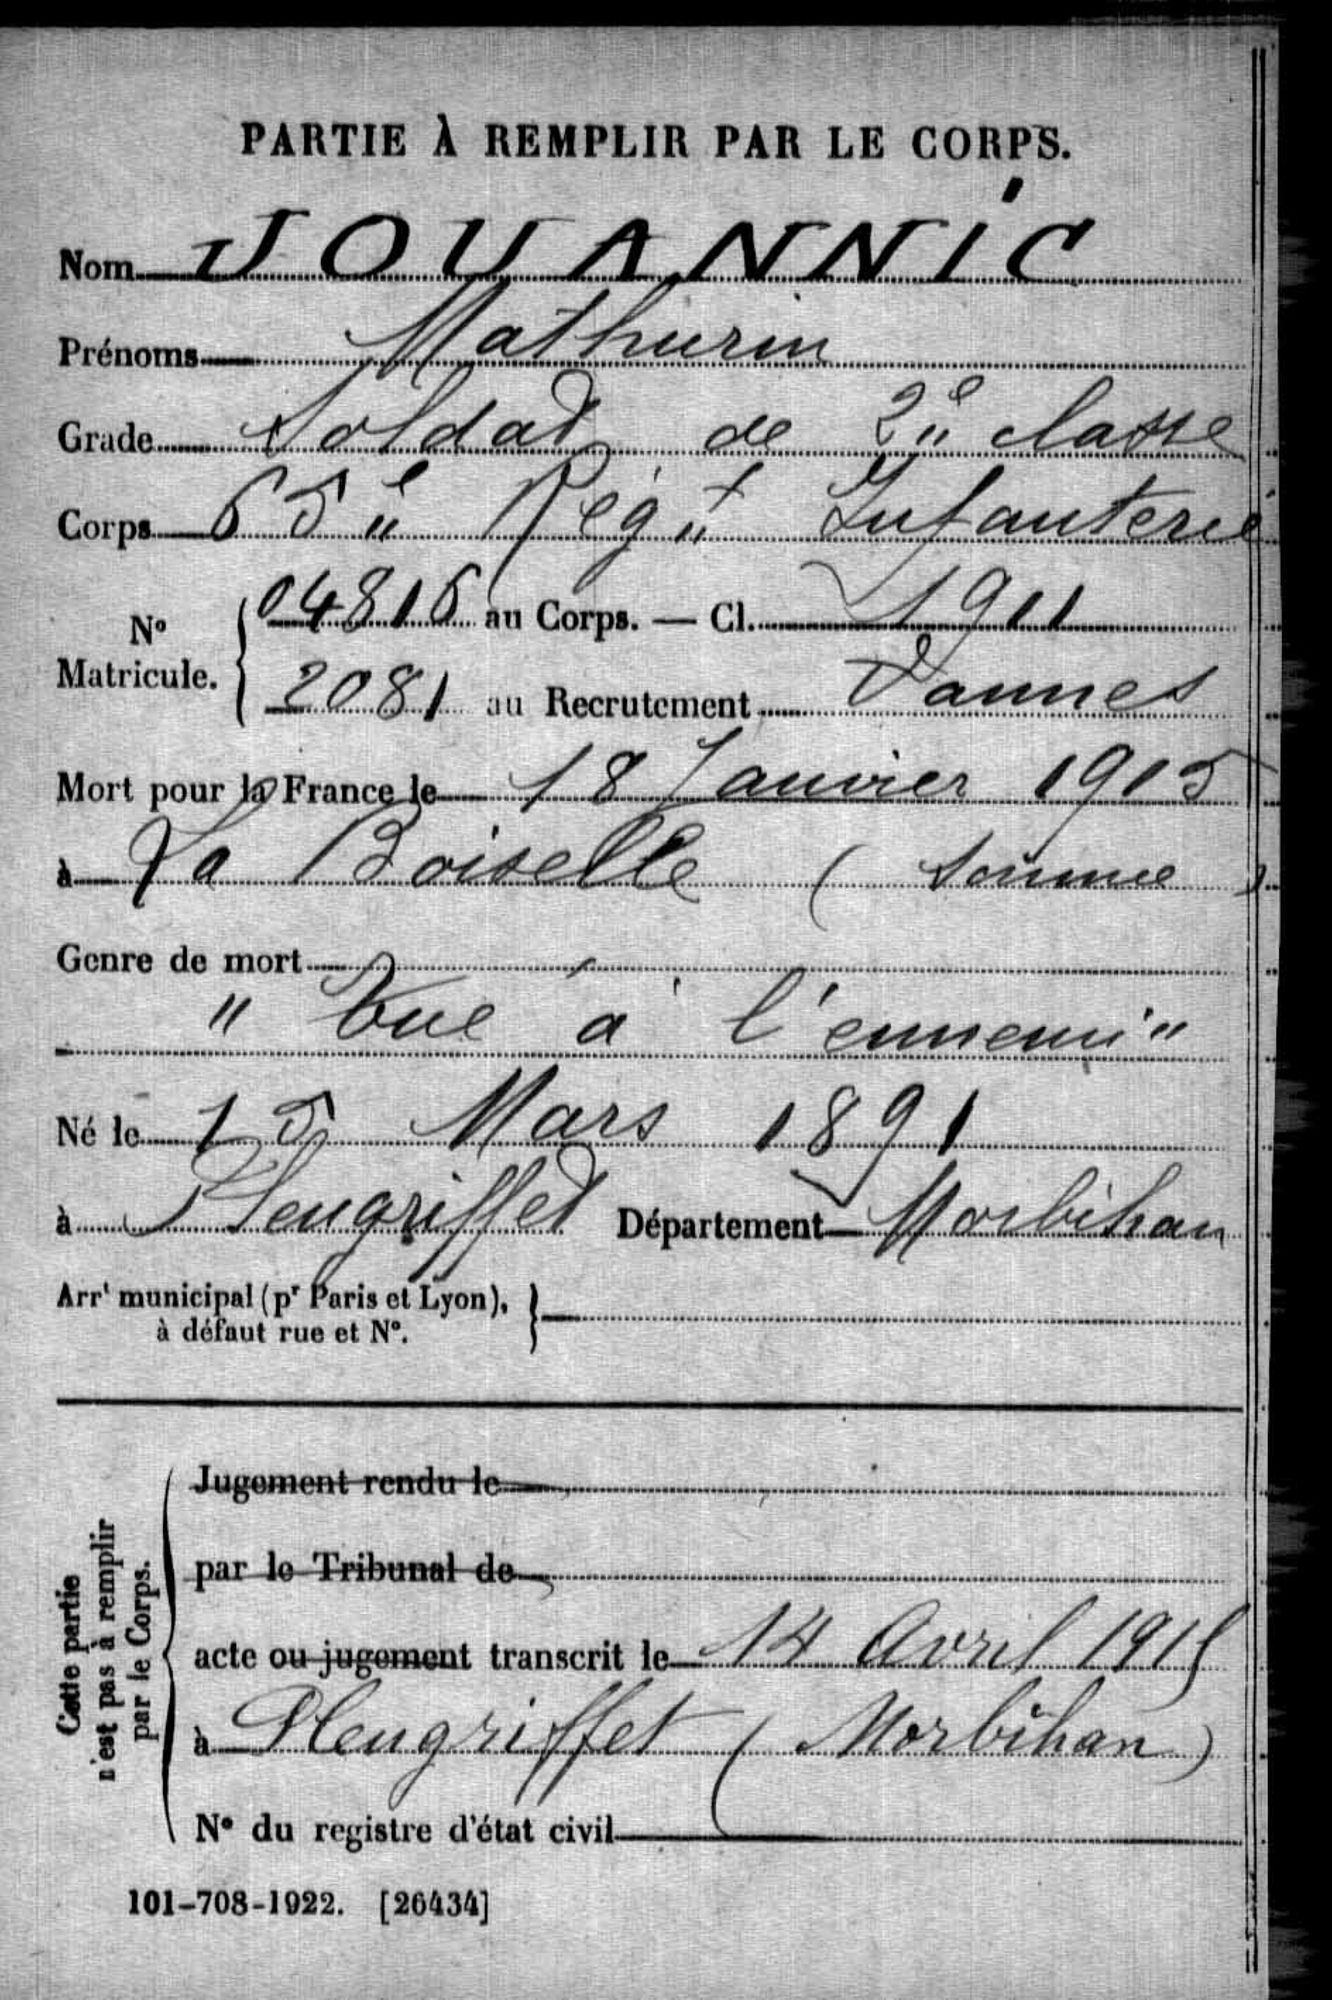 PARTIE À REMPLIR PAR LE CORPS.
Nom JOUANNIC
Prénoms Mathurin
Grade Soldat de 2e classe
Corps 65e Régt Infanterie
No Matricule. 04816 au Corps. — Cl. 1911
2081 au Recrutement Vannes
Mort pour la France le 18 Janvier 1915
à La Boiselle (Somme)
Genre de mort
"Tué à l'ennemi"
Né le 15 Mars 1891
à Pleugriffet Département Morbihan
Arrt municipal (pr Paris et Lyon),
à défaut rue et No.
Cette partie
n'est pas à remplir
par le Corps.
Jugement rendu le
par le Tribunal de
acte ou jugement transcrit le 14 Avril 1915
à Pleugriffet (Morbihan)
No du registre d'état civil
101-708-1922. [26434]